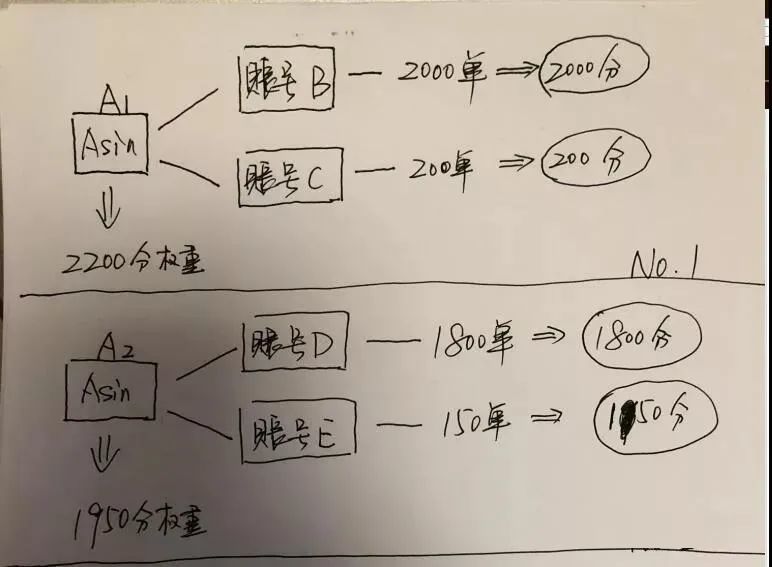 A1
Asin
賬号 B — 2000单 ⇒ 2000分
賬号 C — 200单 ⇒ 200分
2200分权重
No.1
A2
Asin
賬号 D — 1800单 ⇒ 1800分
賬号 E — 150单 ⇒ 150分
1950分权重